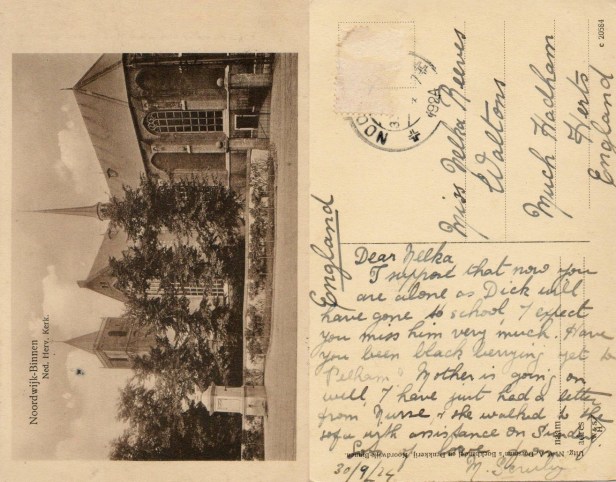 Noordwijk-Binnen
Ned. Herv. Kerk.
NOO
1924
Miss Nelka Reeves
Waltons
Much Hadham
Herts
England
c 20584
England
Dear Nelka
I suppose that now you
are alone as Dick will
have gone to school, I expect
you miss him very much. Have
you been black berrying yet to
Pelham? Mother is going on
well, I have just had a letter
from Nurse & she walked to the
sofa with assistance on Sunday
love
30/9/24
M.
naam
adres
Uitg. Boekhandel en Drukkerij, Noordwijk-Binnen.